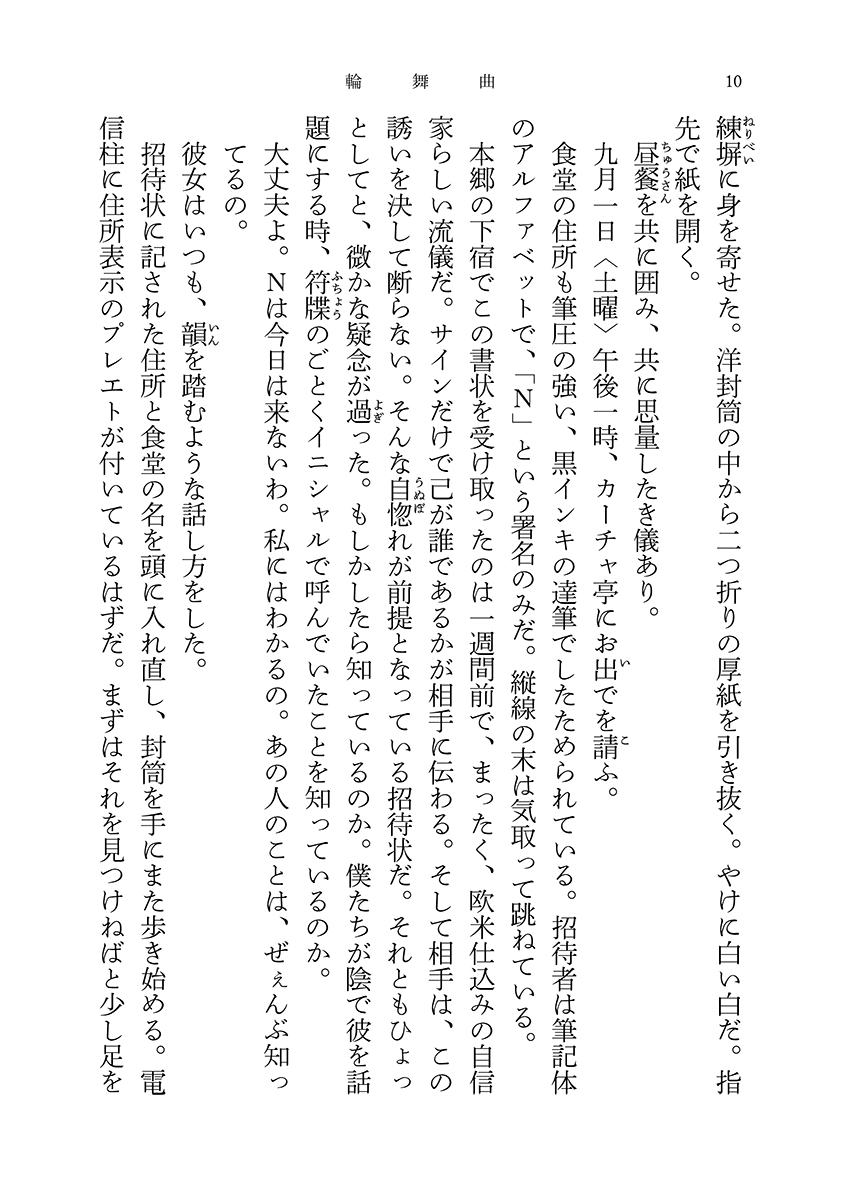 輪舞曲
10
練塀に身を寄せた。洋封筒の中から二つ折りの厚紙を引き抜く。やけに白い白だ。指
先で紙を開く。
昼餐を共に囲み、共に思量したき儀あり。
九月一日〈土曜〉午後一時、カーチャ亭にお出でを請ふ。
食堂の住所も筆圧の強い、黒インキの達筆でしたためられている。招待者は筆記体
のアルファベットで、「Ｎ」という署名のみだ。縦線の末は気取って跳ねている。
本郷の下宿でこの書状を受け取ったのは一週間前で、まったく、欧米仕込みの自信
家らしい流儀だ。サインだけで己が誰であるかが相手に伝わる。そして相手は、この
誘いを決して断らない。そんな自惚れが前提となっている招待状だ。それともひょっ
としてと、微かな疑念が過った。もしかしたら知っているのか。僕たちが陰で彼を話
題にする時、符牒のごとくイニシャルで呼んでいたことを知っているのか。
大丈夫よ。Ｎは今日は来ないわ。私にはわかるの。あの人のことは、ぜぇんぶ知っ
てるの。
彼女はいつも、韻を踏むような話し方をした。
招待状に記された住所と食堂の名を頭に入れ直し、封筒を手にまた歩き始める。電
信柱に住所表示のプレエトが付いているはずだ。まずはそれを見つけねばと少し足を